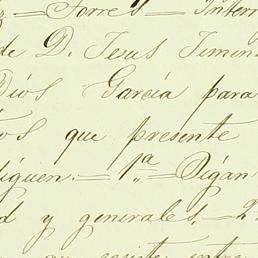 = Torres = Interr
de D. Jesus Jimen
Dios Garcia para
que presente
siguen. = 1ª = Digan
d y generales. = 2